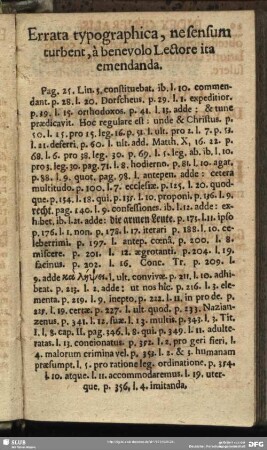 Errata typographica, ne sensum
turbent, à benevolo Lectore ita
emendanda.
Pag. 25. Lin. 5. constituebat. ib. l. 10. commen-
dant. p. 28. l. 20. Dorscheus. p. 29. l. 1. expeditior.
p. 29. l. 15. orthodoxos. p. 41. l. 15. adde : & tunc
prædicavit. Hoc regulare est : unde & Christus. p.
50. l. 15. pro 15. leg. 16. p. 51. l. ult. pro 2. l. 7. p. 53.
l. 21. deserti. p. 60. l. ult. add. Matth. X, 16. 22. p.
68. l. 6. pro 38. leg. 30. p. 69. l. 5. leg. ab. ib. l. 10.
pro 3. leg. 30. pag. 71. l. 8. hodierno. p. 81. l. 10. agat,
p. 98. l. 9. quot. pag. 98. l. antepen. adde : cetera
multitudo. p. 100. l. 7. ecclesiæ. p. 125. l. 20. quod-
que. p. 134. l. 18. qui. p. 137. l. 10. proponi. p. 136. l. 9.
recht. pag. 140. l. 9. confessiones. ib. l. 12. adde : ex-
hibet. ib. l. 21. adde : die armen Leute. p. 171. l. 11. ipso
p. 176. l. 1. non. p. 178. l. 17. iterari p. 188. l. 10. ce-
leberrimi. p. 197. l. antep. cœnâ. p. 200. l. 8.
miscere. p. 201. l. 12. ægrotanti. p. 204. l. 19.
facinus. p. 202. l. 16. Conc. Tr. p. 209. l.
9. adde l. ult. convivæ. p. 211. l. 10. adhi-
beat. p. 213. l. 2. adde : ut nos hîc. p. 216. l. 3. ele-
menta. p. 219. l. 9. inepto, p. 222. l. 11. in pro de. p.
225. l. 19. certæ. p. 227. l. ult. quod. p. 233. Nazian-
zenus. p. 341. l. 12. suæ. l. 13. multis. p. 343. l. 3. Tit.
I. l. 8. cap. II. pag. 346. l. 8. qui. p. 349. l. 11. adulte-
ratas. l. 13. concionatus. p. 352. l. 2. pro geri fieri. l.
4. malorum crimina vel. p. 353. l. 2. & 3. humanam
præsumpt. l. 5. pro ratione leg. ordinatione. p. 354.
l. 10. atque. l. 11. accommodaremus. l. 19. uter-
que. p. 356. l. 4. imitanda,
SLUB